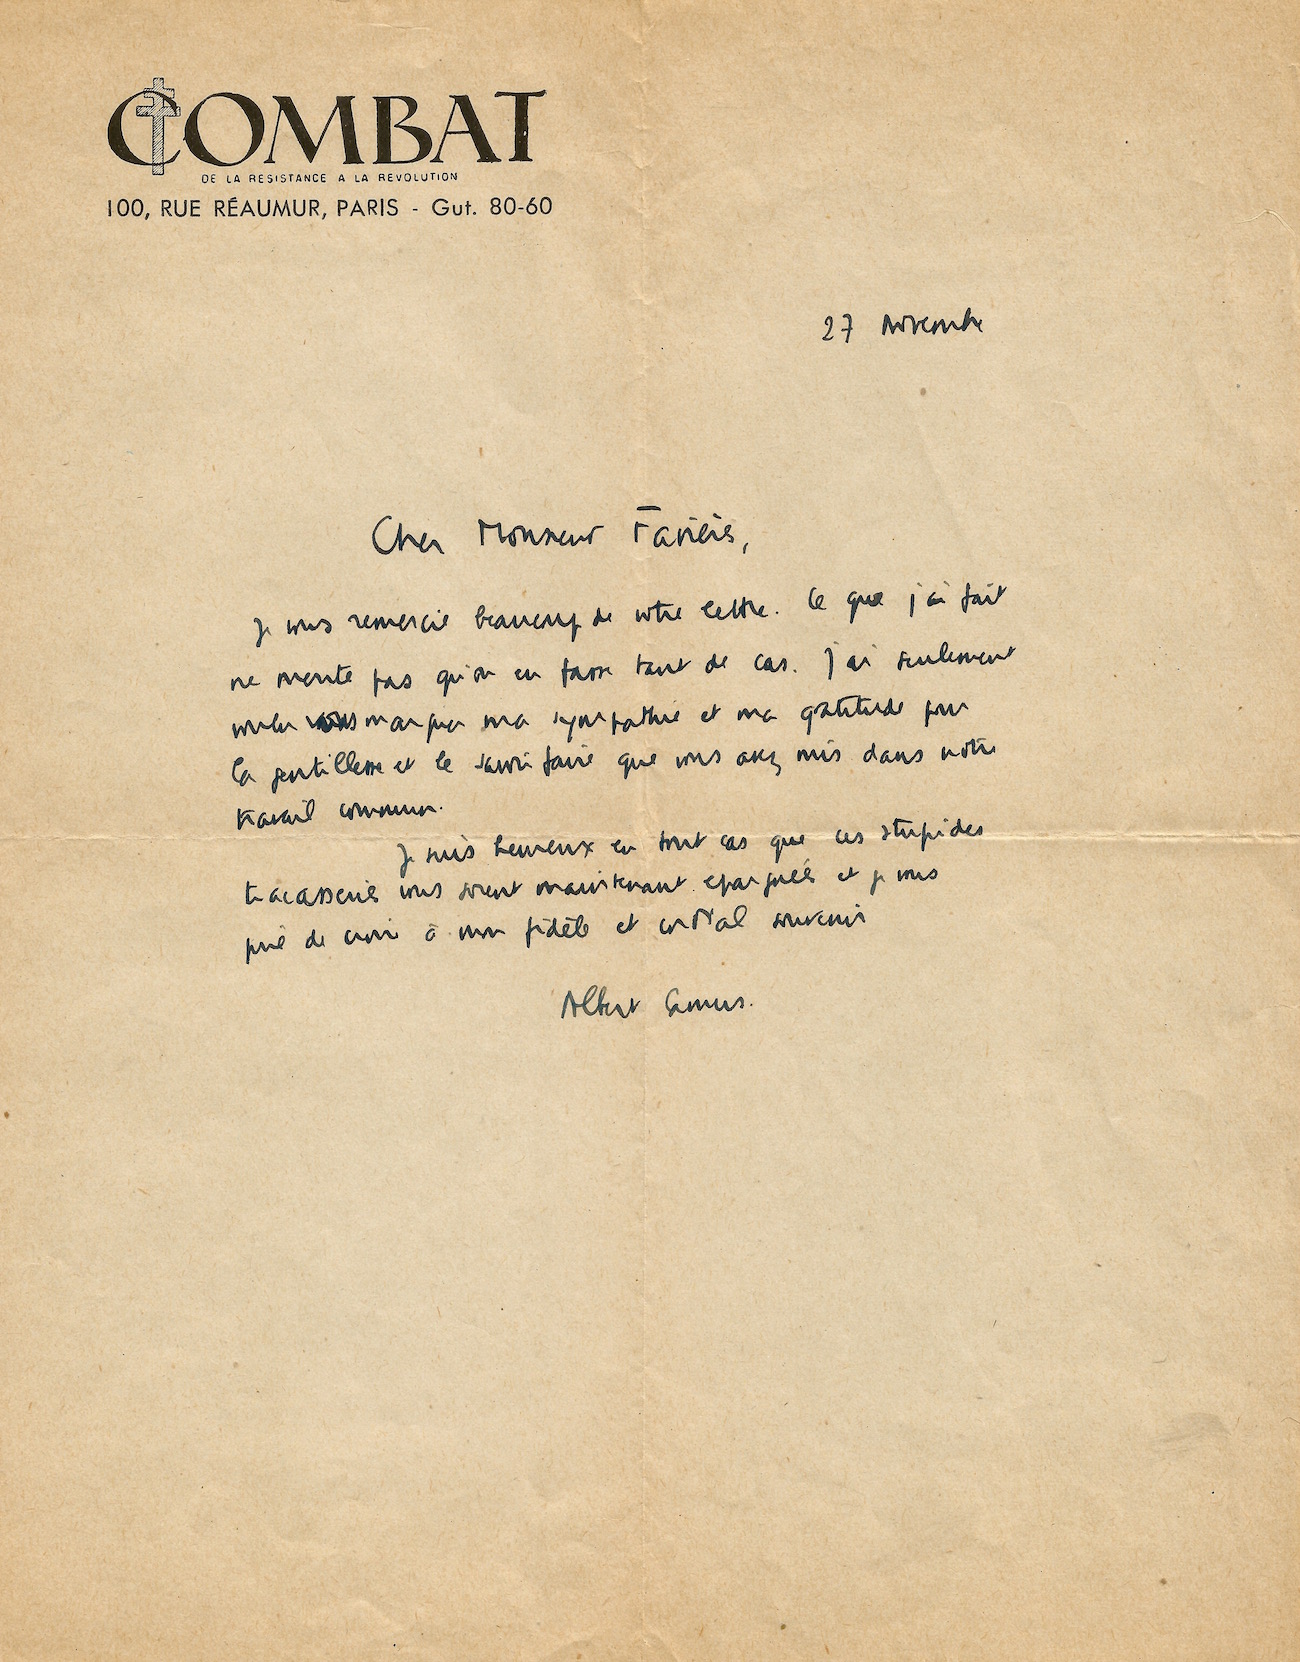 COMBAT
DE LA RESISTANCE A LA REVOLUTION
100, RUE RÉAUMUR, PARIS - Gut. 80-60
27 novembre
Cher Monsieur
Je vous remercie beaucoup de votre lettre. Ce que j'ai fait
ne mérite pas qu'on en fasse tant de cas. J'ai seulement
voulu marquer ma sympathie et ma gratitude pour
la gentillesse et le savoir faire que vous avez mis dans notre
travail commun.
Je suis heureux en tout cas que ces stupides
tracasseries vous soient maintenant epargnées et je vous
prie de croire à mon fidèle et cordial souvenir
Albert Camus.